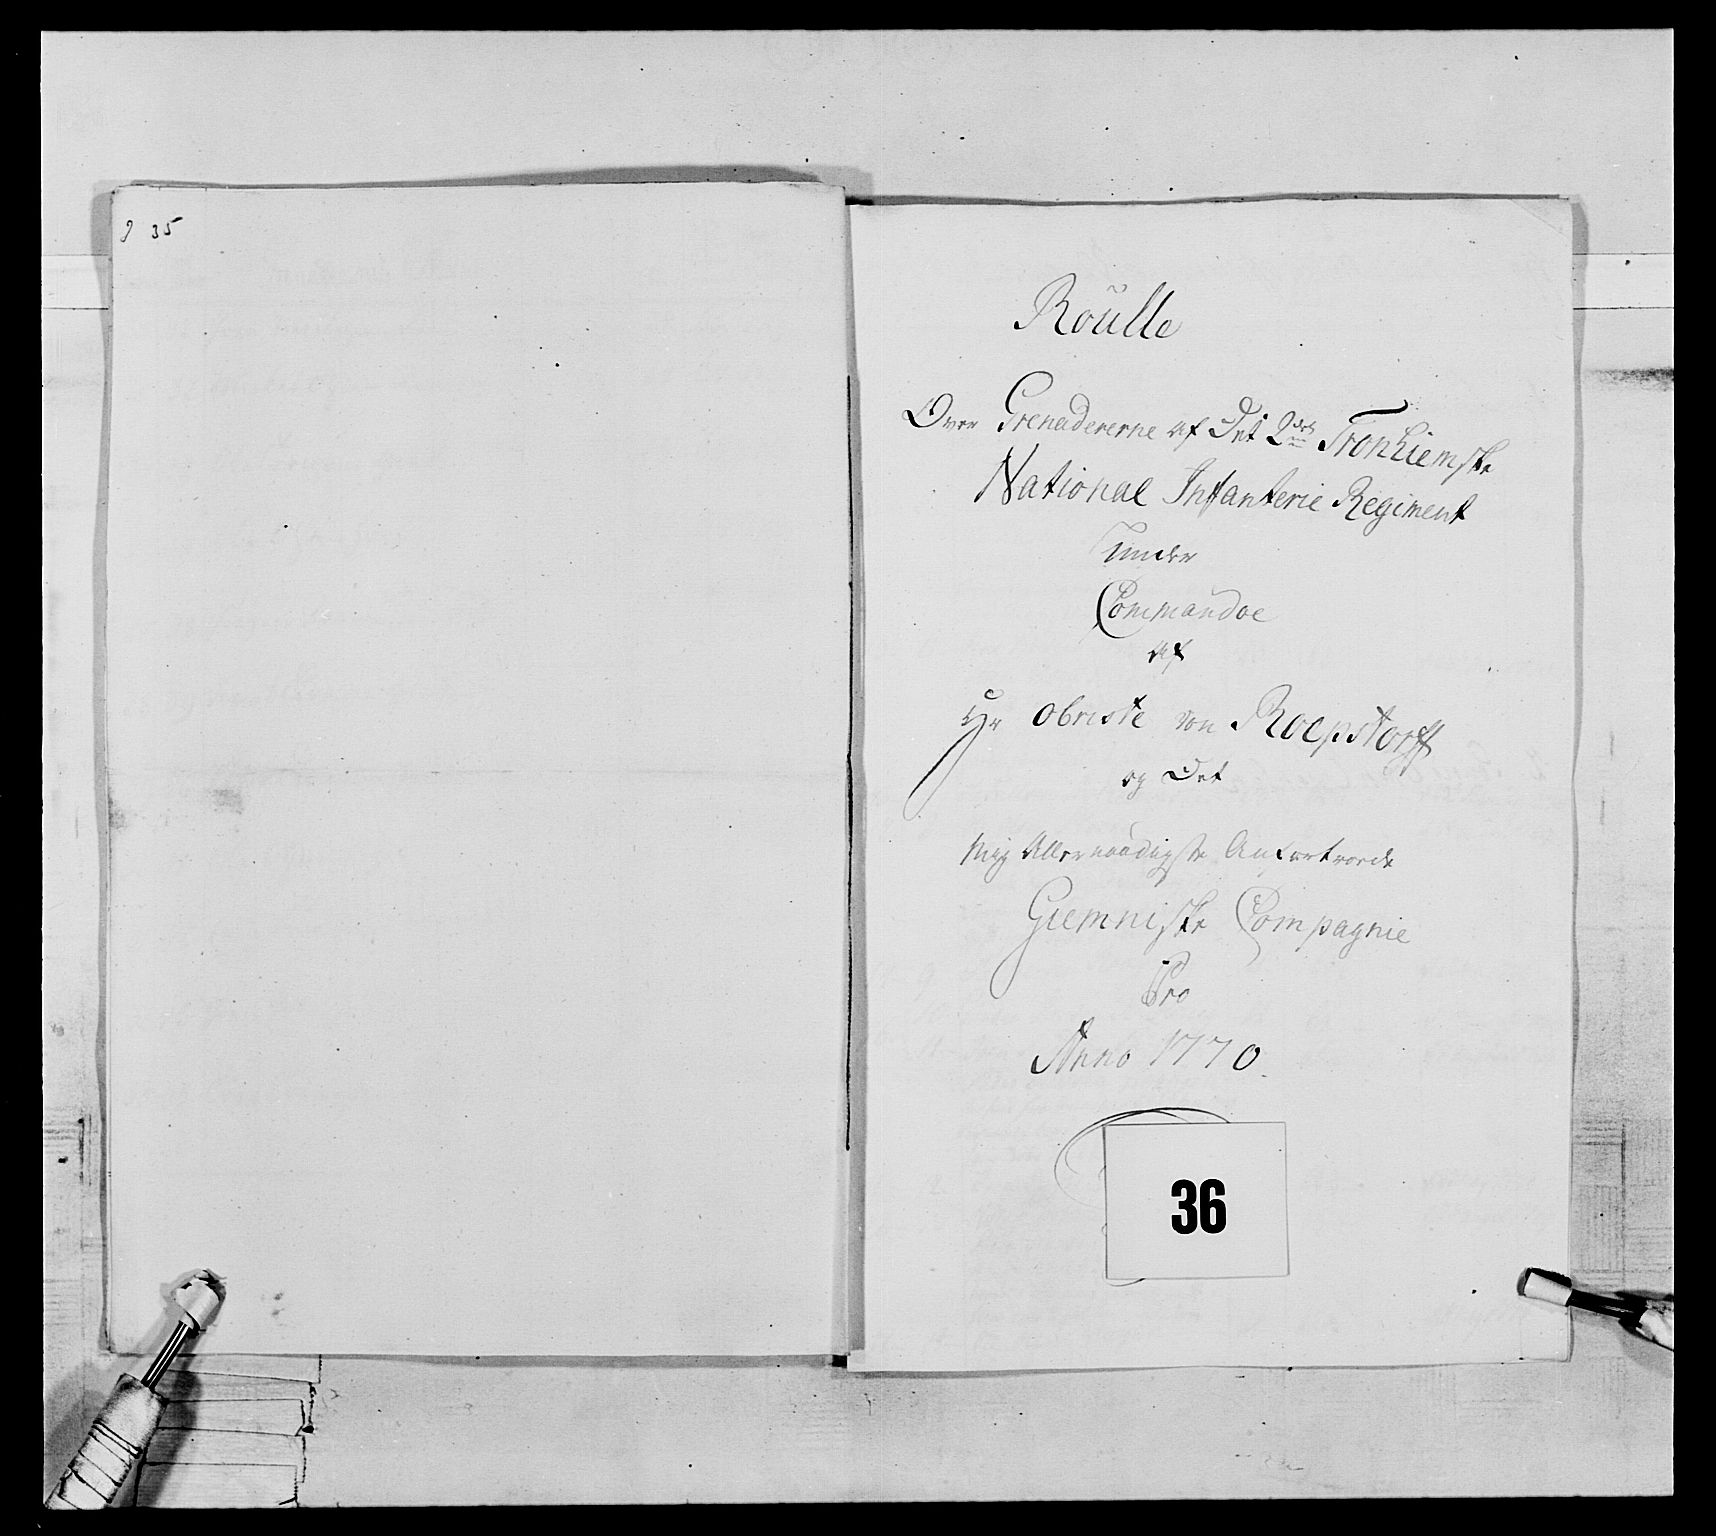 35
Roülle
Over Grenadererne af Det 2det Tronhiemske
National Infanterie Regiment
under
Commandoe
af
Hr Obriste von Roepstorff
og Det
Mig Allernaadigste Anfortroede
Giemniske Compagnie
Pro
Anno 1770.
36